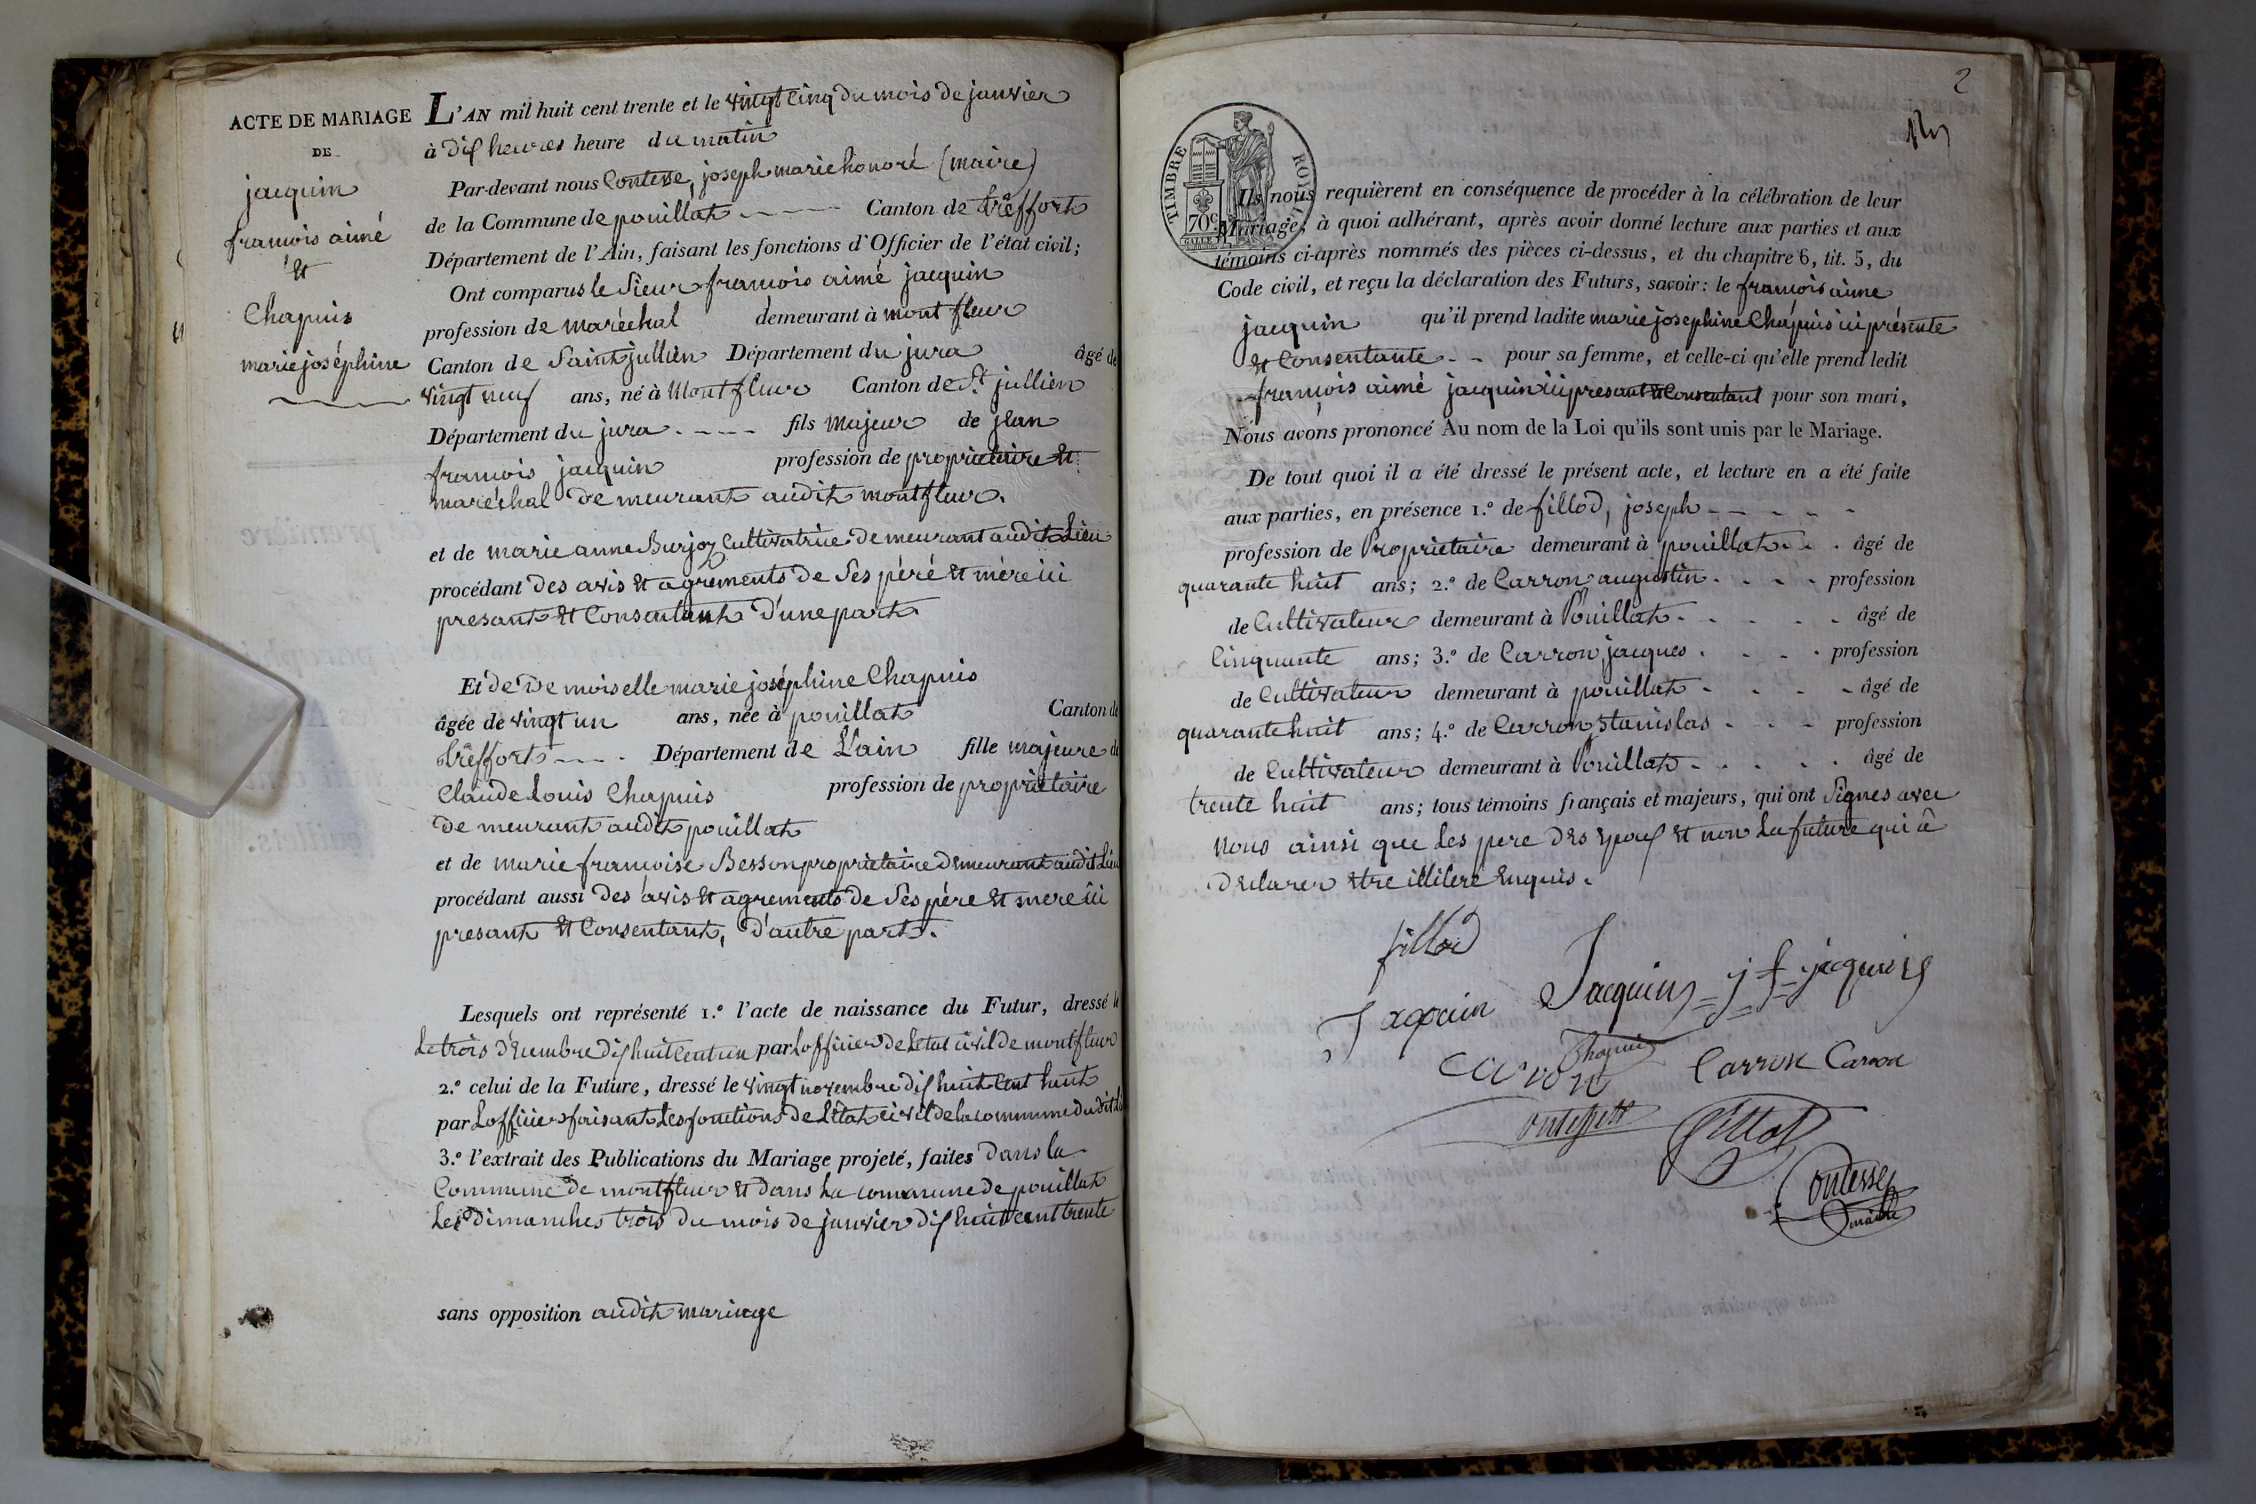 ACTE DE MARIAGE
DE
jacquin
francois aimé
et
Chapuis
marie joséphine
L'AN mil huit cent trente et le vingt cinq du mois de janvier
à dix heures heure du matin
Par-devant nous Contesse, joseph marie honoré (maire)
de la Commune de pouillat Canton de trêffort
Département de l'Ain, faisant les fonctions d'Officier de l'état civil;
Ont comparus le Sieur francois aimé jacquin
profession de maréchal demeurant à mont fleur
Canton de Saint jullien Département du jura âgé de
vingt neuf ans, né à Montfleur Canton de St jullien
Département du jura fils Majeur de jean
francois jacquin profession de propriétaire et
maréchal demeurant audit montfleur.
et de marie anne Burjoz Cultivatrice demeurant audit Lieu
procédant des avis et agréments de Ses péré et mére ici
presant et Consentant d'une part.
Et de Demoiselle marie joséphine Chapuis
âgée de vingt un ans, née à pouillat Canton de
trêffort Département de L'ain fille majeure de
Claude Louis Chapuis profession de propriétaire
demeurant audit pouillat
et de marie francoise Besson propriétaire demeurant audit Lieu
procédant aussi des avis et agrements de Ses pére et mere ici
presant et Consentant, d'autre part.
Lesquels ont représenté 1.º l'acte de naissance du Futur, dressé le
Le trois décembre dix huit cent un par Lofficier de Letat civil de montfleur
2.º celui de la Future, dressé le vingt novembre dix huit cent huit
par Lofficier faisant Les fonctions de Létat civil de la commune dudit
3.º l'extrait des Publications du Mariage projeté, faites dans la
Commune de montfleur et dans La commune de pouillat
Les dimanches trois du mois de janvier dix huit cent trente
sans opposition audit mariage
2
TIMBRE ROYAL
70c
Ils nous requièrent en conséquence de procéder à la célébration de leur
Mariage; à quoi adhérant, après avoir donné lecture aux parties et aux
témoins ci-après nommés des pièces ci-dessus, et du chapitre 6, tit. 5, du
Code civil, et reçu la déclaration des Futurs, savoir: le francois aimé
jacquin qu'il prend ladite marie josephine Chapuis ici présente
et Consentante pour sa femme, et celle-ci qu'elle prend ledit
françois aimé jacquin ici presant et Consentant pour son mari,
Nous avons prononcé Au nom de la Loi qu'ils sont unis par le Mariage.
De tout quoi il a été dressé le présent acte, et lecture en a été faite
aux parties, en présence 1.º de fillod, joseph
profession de Proprietaire demeurant à pouillat âgé de
quarante huit ans; 2.º de Carron augustin profession
de Cultivateur demeurant à Pouillat âgé de
Cinquante ans; 3.º de Carron jacques profession
de Cultivateur demeurant à pouillat âgé de
quarante huit ans; 4.º de Carron Stanislas profession
de Cultivateur demeurant à Pouillat âgé de
trente huit ans; tous témoins français et majeurs, qui ont Signes avec
Nous ainsi que Les pere des epoux et non La future qui à
declarer etre illiteré Enquis.
fillod
Jacquin Jacquin j f jacquin
Caron Chapuis Carron Caron
Fillod
Contesse
maire